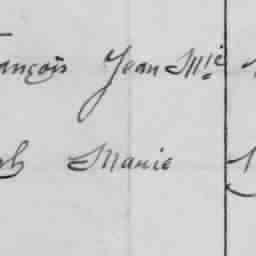 ançois Jean Mie
Marie